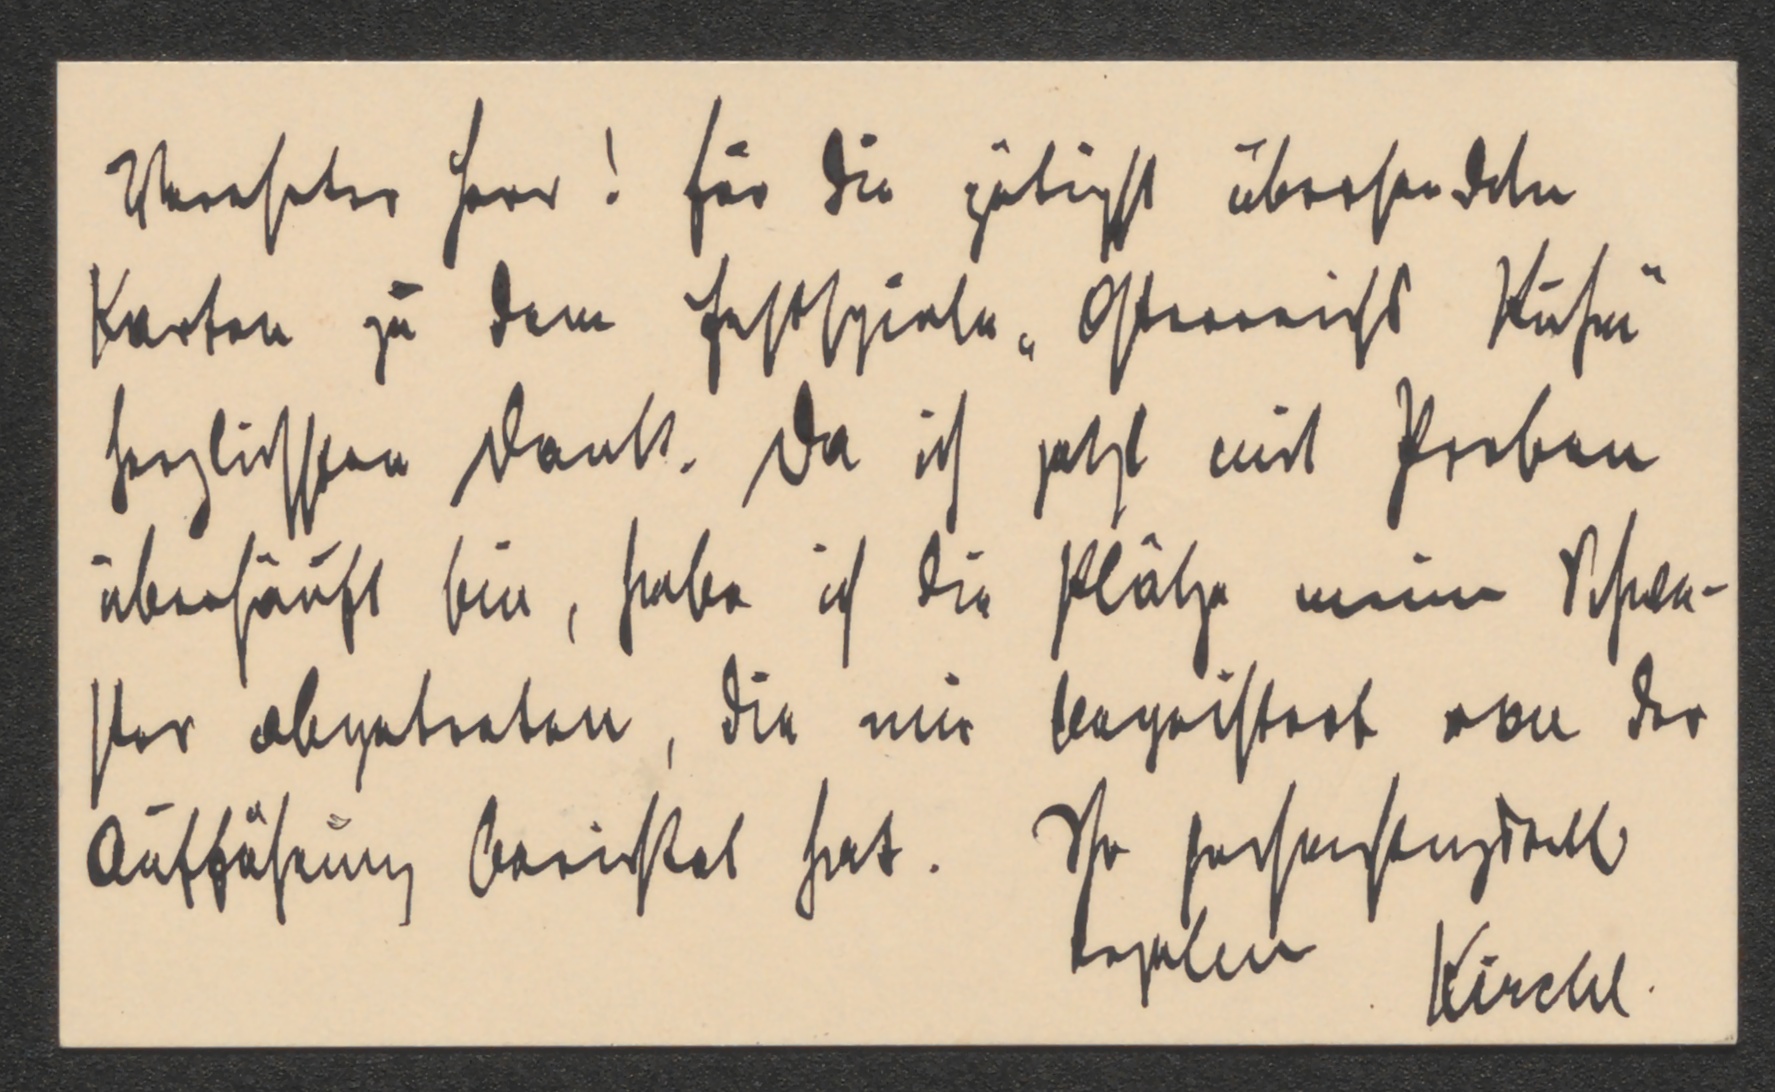 Verehrter Herr! Für die gütigst übersandten
Karten zu dem Festspiele „Österreichs Ruhm"
herzlichsten Dank. Da ich jetzt mit Proben
überhäuft bin, habe ich die Plätze meiner Schwe-
ster abgetreten, die mir begeistert von der
Aufführung berichtet hat. Ihr hochachtungsvoll
ergebener Kirchl.